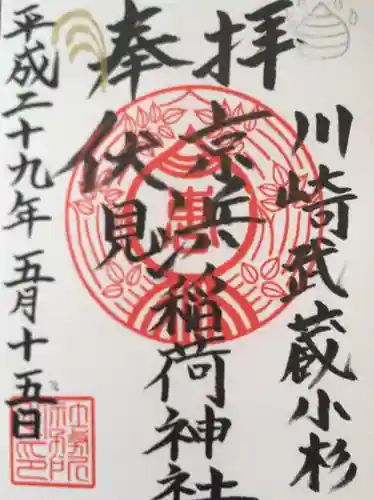 奉拝
川崎武蔵小杉
京浜
伏見
稲荷神社
平成二十九年五月十五日
社務所